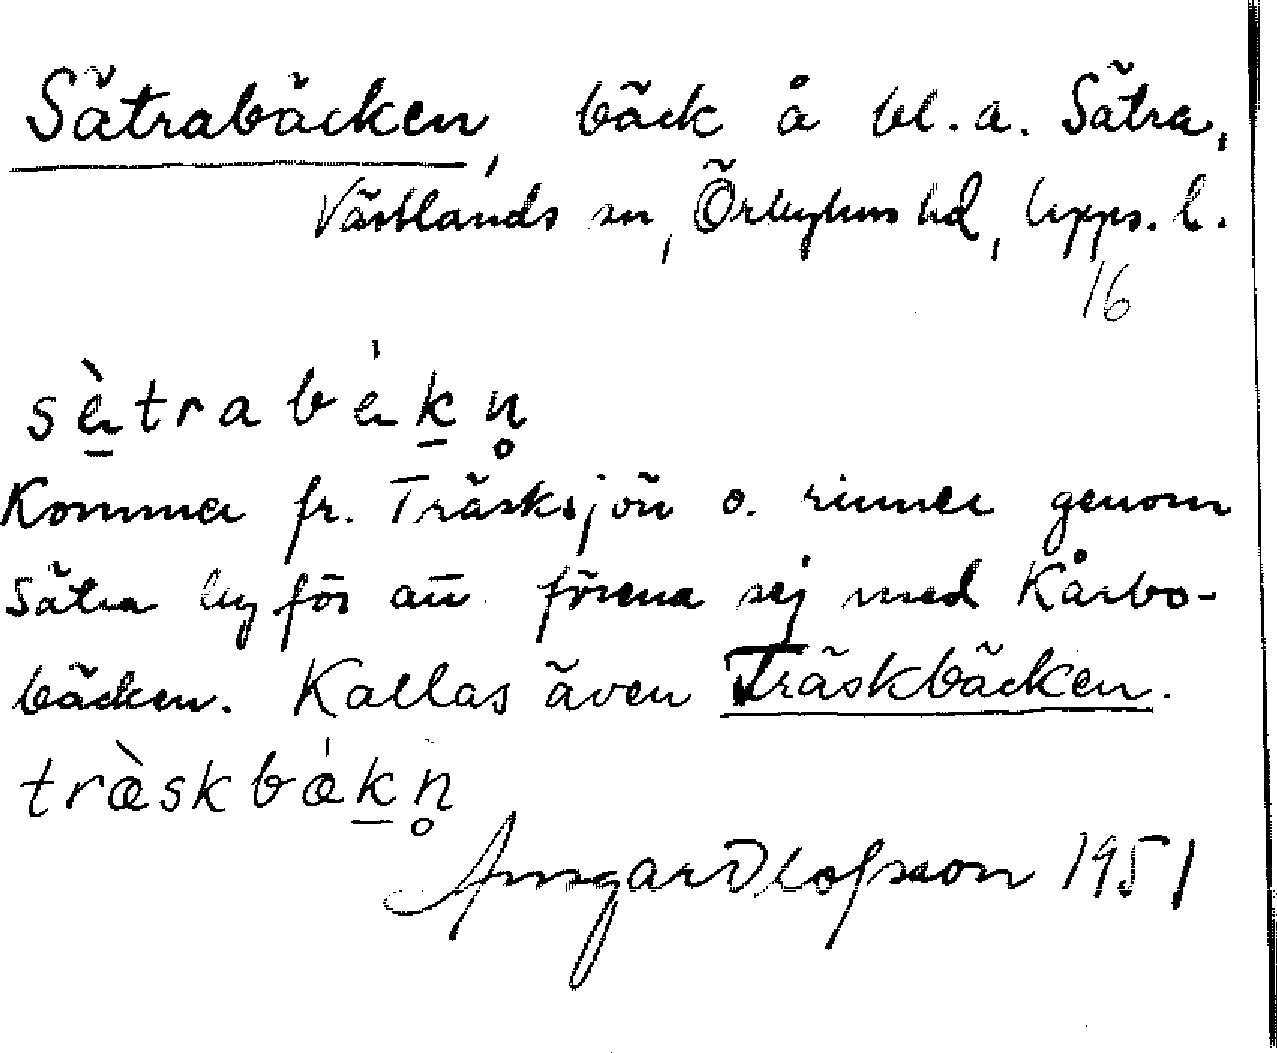 Sätrabäcken, bäck å bl.a. Sätra,
Västlands sn, Örbyhus hd, Upps. l.
16
sὲ̱trabέḵn̥
Kommer fr. Träsksjön o. rinner genom
Sätra by för att förena sej med Kårbo-
bäcken. Kallas även Träskbäcken.
træ̀skbǽḵn̥
Ansgar Olofsson 1951